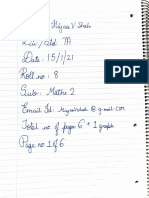 V Shah
Div / Std: 7A
Date: 15/1/21
Roll no: 8
Sub: Maths 2
Email Id: @gmail.com
Total no. of pages 6 + 1 graph
Page no. 1 of 6